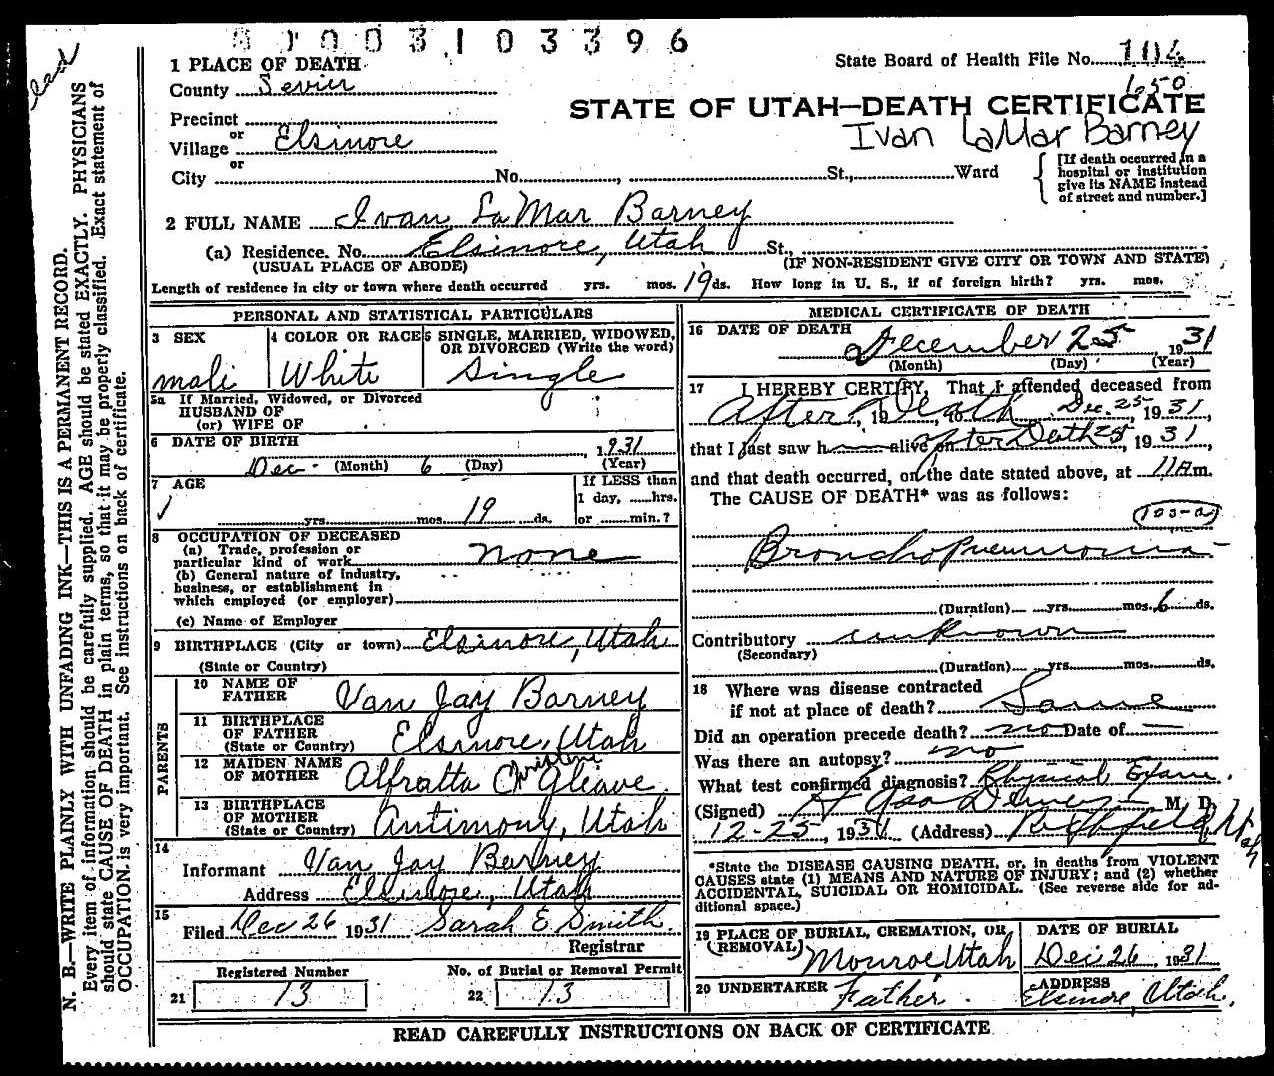 0 1 0 0 3 1 0 3 3 9 6
State Board of Health File No. 104
650
1 PLACE OF DEATH
County Sevier
STATE OF UTAH—DEATH CERTIFICATE
Ivan LaMar Barney
Precinct
or
Village Elsinore
or
City No. , St., Ward
[If death occurred in a hospital or institution give its NAME instead of street and number.]
2 FULL NAME Ivan LaMar Barney
(a) Residence. No. Elsinore, Utah St.,
(USUAL PLACE OF ABODE) (IF NON-RESIDENT GIVE CITY OR TOWN AND STATE)
Length of residence in city or town where death occurred yrs. mos. 19 ds. How long in U. S., if of foreign birth? yrs. mos.
PERSONAL AND STATISTICAL PARTICULARS
3 SEX
male
4 COLOR OR RACE
White
5 SINGLE, MARRIED, WIDOWED,
OR DIVORCED (Write the word)
Single
5a If Married, Widowed, or Divorced
HUSBAND OF
(or) WIFE OF
6 DATE OF BIRTH
Dec. (Month) 6 (Day) , 1931 (Year)
7 AGE
yrs. mos. 19 ds.
If LESS than
1 day, hrs.
or min.?
8 OCCUPATION OF DECEASED
(a) Trade, profession or
particular kind of work none
(b) General nature of industry,
business, or establishment in
which employed (or employer)
(c) Name of Employer
9 BIRTHPLACE (City or town) Elsinore, Utah
(State or Country)
PARENTS
10 NAME OF
FATHER Van Jay Barney
11 BIRTHPLACE
OF FATHER
(State or Country) Elsinore, Utah
12 MAIDEN NAME
OF MOTHER Alfratta Christene Gleave
13 BIRTHPLACE
OF MOTHER
(State or Country) Antimony, Utah
14
Informant Van Jay Barney
Address Elsinore, Utah
15
Filed Dec 26 1931 Sarah E Smith
Registrar
Registered Number
21 13
No. of Burial or Removal Permit
22 13
MEDICAL CERTIFICATE OF DEATH
16 DATE OF DEATH
December 25 1931
(Month) (Day) (Year)
17 I HEREBY CERTIFY, That I attended deceased from
After, 19 Death to Dec. 25, 1931,
that I last saw h alive on After Death 25, 1931,
and that death occurred, on the date stated above, at 11 A m.
The CAUSE OF DEATH* was as follows:
Broncho Pneumonia
(Duration) yrs. mos. 6 ds.
Contributory unknown
(Secondary)
(Duration) yrs. mos. ds.
18 Where was disease contracted
if not at place of death? Same
Did an operation precede death? no Date of
Was there an autopsy? no
What test confirmed diagnosis? Physical Exam.
(Signed) M. D.
12-25, 1931 (Address) Richfield Utah
*State the DISEASE CAUSING DEATH, or, in deaths from VIOLENT
CAUSES state (1) MEANS AND NATURE OF INJURY; and (2) whether
ACCIDENTAL, SUICIDAL OR HOMICIDAL. (See reverse side for ad-
ditional space.)
19 PLACE OF BURIAL, CREMATION, OR
(REMOVAL)
Monroe Utah
DATE OF BURIAL
Dec 26, 1931
20 UNDERTAKER
Father.
ADDRESS
Elsinore, Utah.
READ CAREFULLY INSTRUCTIONS ON BACK OF CERTIFICATE
N. B.—WRITE PLAINLY WITH UNFADING INK—THIS IS A PERMANENT RECORD.
Every item of information should be carefully supplied. AGE should be stated EXACTLY. PHYSICIANS
should state CAUSE OF DEATH in plain terms, so that it may be properly classified. Exact statement of
OCCUPATION is very important. See instructions on back of certificate.